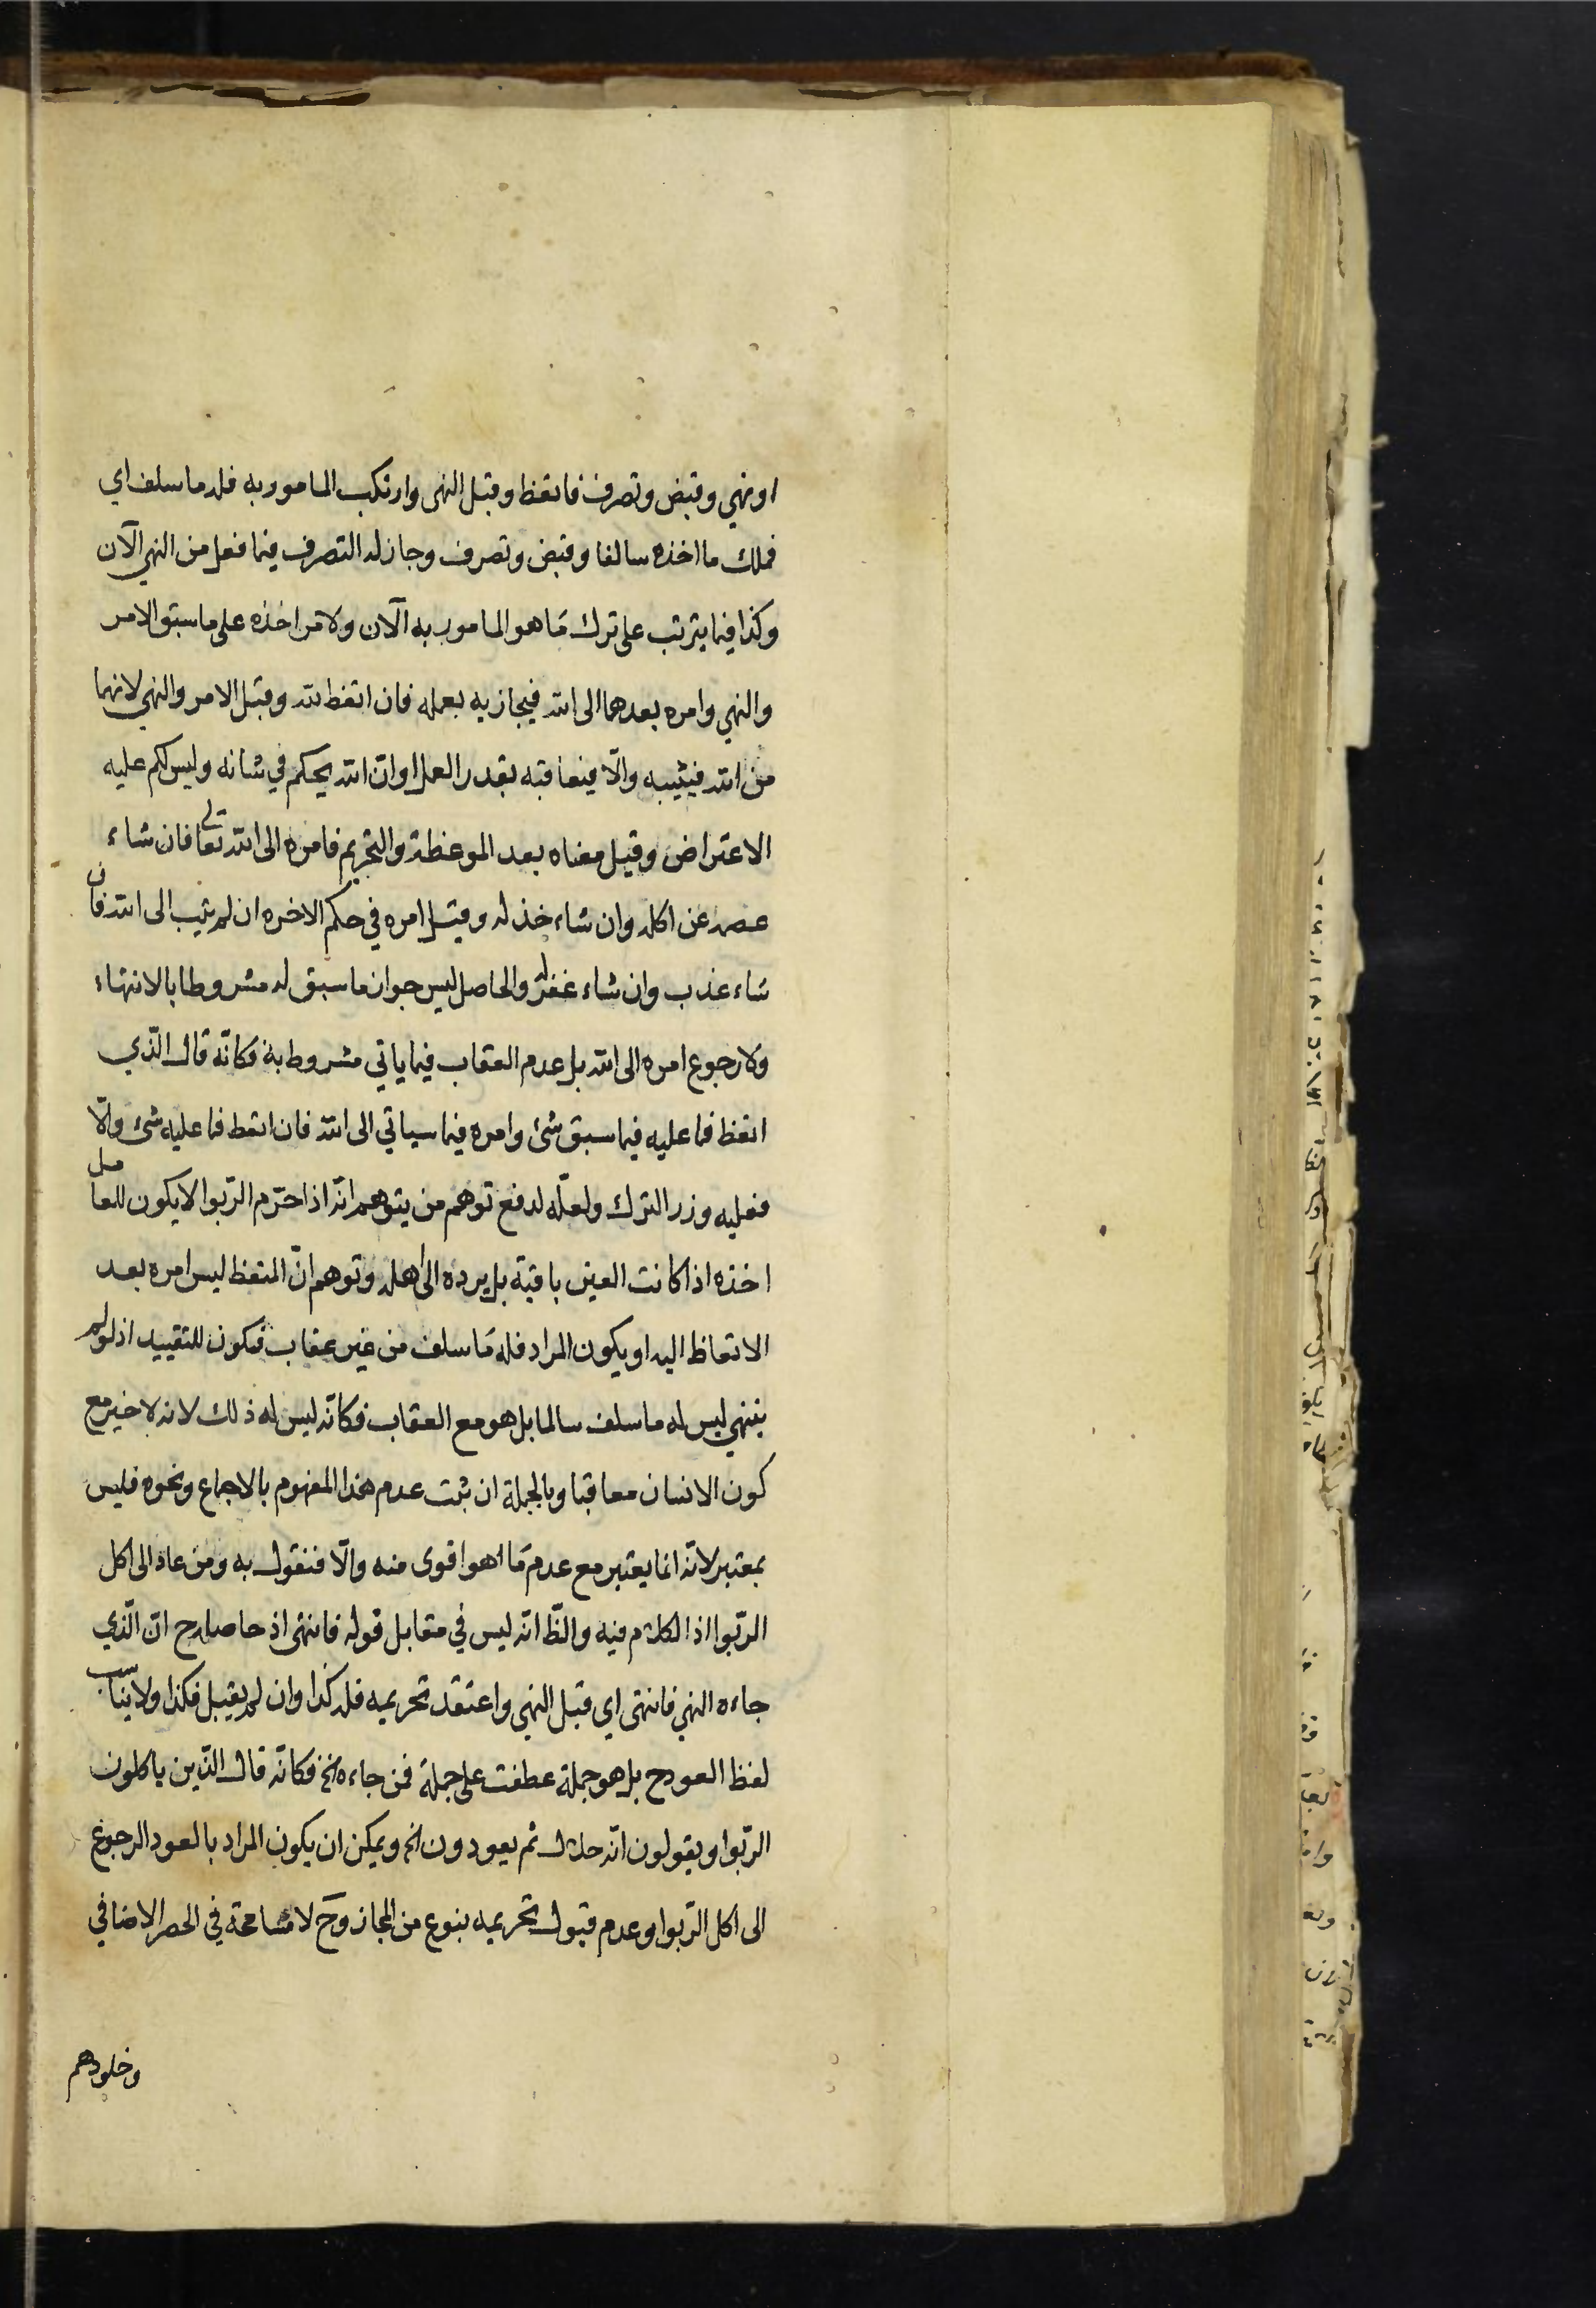 او نهي وقبض وتصرف فاتعظ وقبل النهى وارتكب المامور به فله ما سلف اي
فملك ما اخذه سالفا وقبض وتصرف وجاز له التصرف فيما فعل من النهي الآن
وكذا فيما يترتب على ترك مَا هو المامور به الآن ولا مواخذه على ما سبق الامر
والنهي وامره بعدهما الى الله فيجازيه بعمله فان اتعظ لله وقبل الامر والنهي لانهما
من الله فيثيبه والّا فيعاقبه بقدر العمل او انّ الله يحكم في شانه وليس لكم عليه
الاعتراض وقيل معناه بعد الموعظة والتحريم فامره الى الله تعالى فان شاء
عصمه عن اكله وان شاء خذله وقيل امره في حكم الاخره ان لم يتب الى الله فان
شاء عذب وان شاء غفر له والحاصل ليس جواز ما سبق له مشروطا بالانتهاء
ولا رجوع امره الى الله بل عدم العقاب فيما ياتي مشروط به فكانّه قال الّذي
اتعظ فما عليه فيما سبق شئ وامره فيما سياتي الى الله فان اتعظ فما عليه شئ والّا
فعليه وزر الترك ولعلّه لدفع توهم من يتوهم انّه اذا حرّم الرّبوا لا يكون للعامل
اخذه اذا كانت العين باقية بل يرده الى اهله وتوهم انّ المتعظ ليس امره بعد
الاتعاظ اليه او يكون المراد فله مَا سلف من غير عقاب فيكون للتقييد اذ لو لم
ينتهي ليس له ما سلف سالما بل هو مع العقاب فكانّه ليس له ذلك لانه لا خير مع
كون الانسان معاقبا وبالجملة ان ثبت عدم هذا المفهوم بالاجماع ونحوه فليس
بمعتبر لانّه انما يعتبر مع عدم مَا هو اقوى منه والّا فنقول به ومن عاد الى اكل
الرّبوا اذ الكلام فيه والظّ انّه ليس في مقابل قوله فانتهى اذ حاصله ح انّ الّذي
جاءه النهي فانتهى اي قبل النهي واعتقد تحريمه فله كذا وان لم يقبل فكذا ولا يناسب
لفظ العود ح بل هو جملة عطفت على جملة فمن جاءه الخ فكانّه قال الّذين ياكلون
الرّبوا ويقولون انّه حلال ثم يعودون الخ ويمكن ان يكون المراد بالعود الرجوع
الى اكل الرّبوا وعدم قبول تحريمه بنوع من المجاز وح لا مسامحة في الحصر الاضافي
وخلودهم